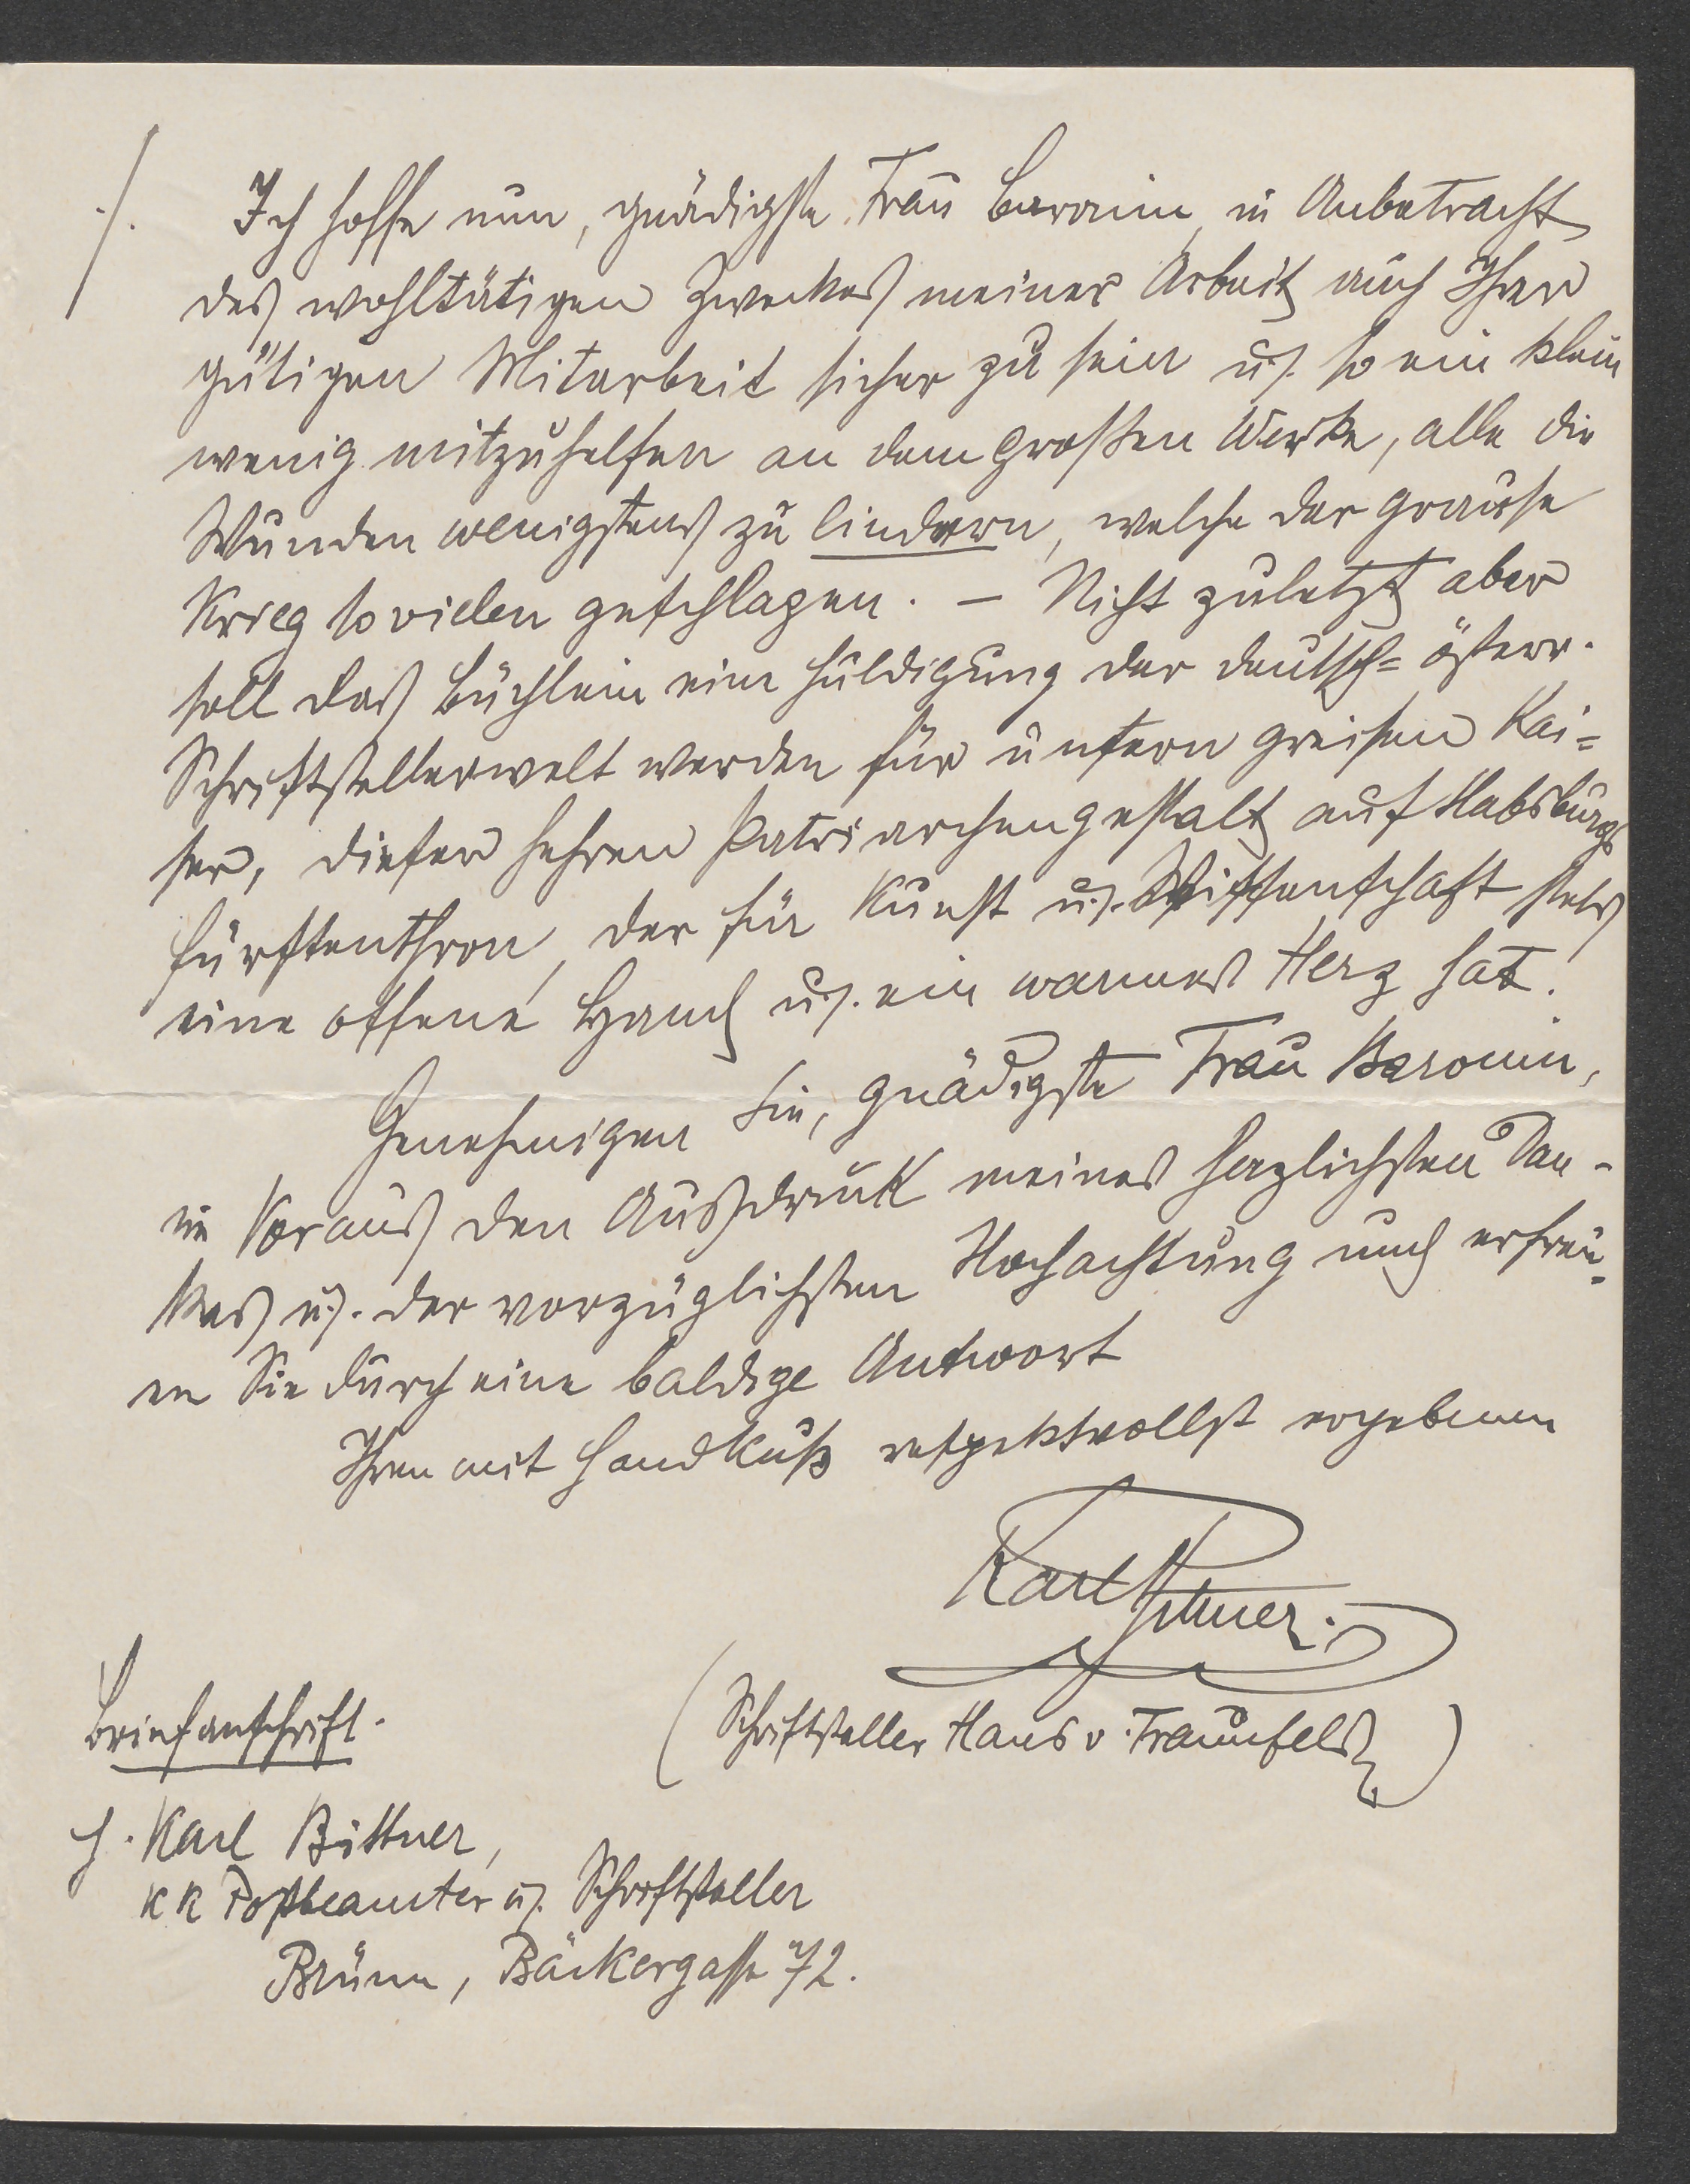 ./. Ich hoffe nun, gnädigste Frau Baronin, in Anbetracht
des wohltätigen Zweckes meiner Arbeit auch Ihrer
gütigen Mitarbeit sicher zu sein u. so ein klein
wenig mitzuhelfen an dem großen Werke, alle die
Wunden wenigstens zu lindern, welche der grause
Krieg so vielen geschlagen. — Nicht zuletzt aber
soll das Büchlein eine Huldigung der deutsch=österr.
Schriftstellerwelt werden für unsern greisen Kai=
ser, dieser hehren Patriarchengestalt auf Habsburgs
Fürstenthron, der für Kunst u. Wissenschaft stets
eine offene Hand u. ein warmes Herz hat!
Genehmigen Sie, gnädigste Frau Baronin,
im Voraus den Ausdruck meines herzlichsten Dan-
kes u. der vorzüglichsten Hochachtung und erfreu-
en Sie durch eine baldige Antwort
Ihren mit Handkuß respektvollst ergebenen
Karl Bittner.
(Schriftsteller Hans v. Traunfels)
Briefanschrift.
H. Karl Bittner,
k k Postbeamter u. Schriftsteller
Brünn, Bäckergasse 72.